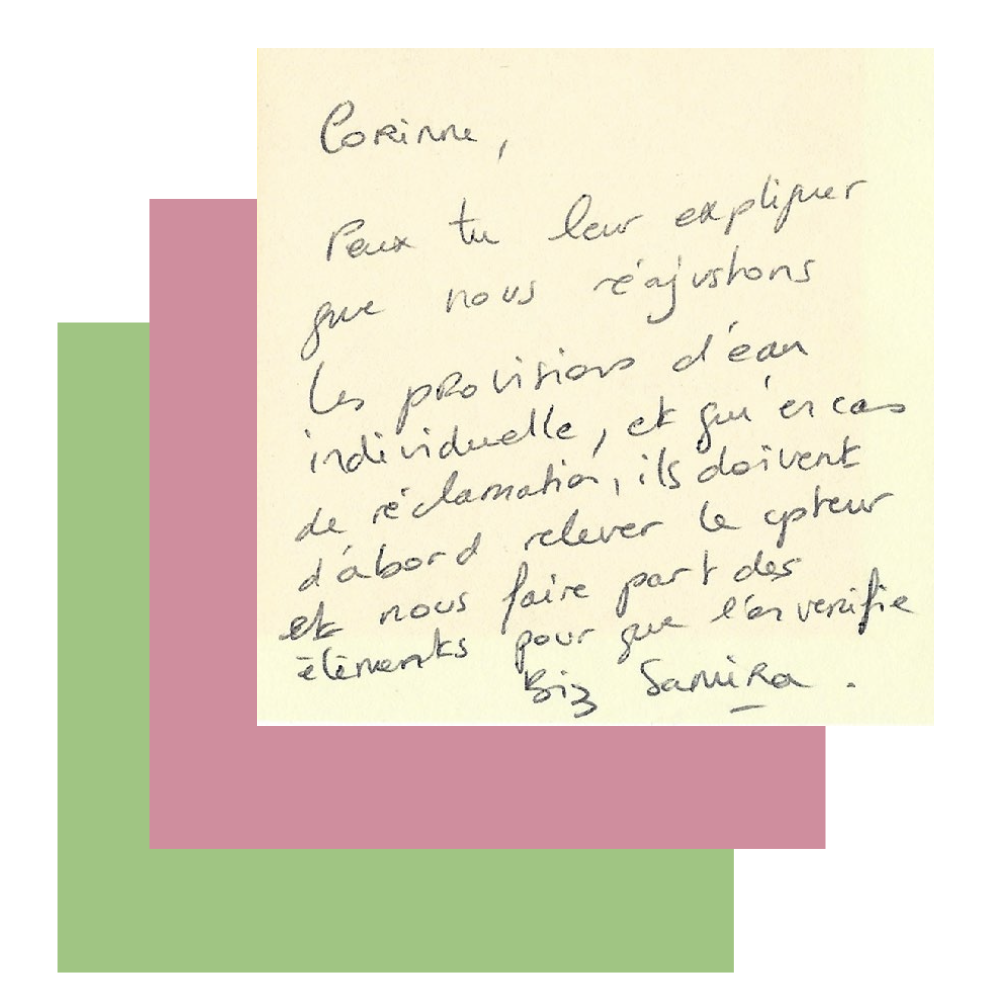 Corinne,
Peux tu leur expliquer
que nous réajustons
les provisions d'eau
individuelle, et qu'en cas
de réclamation, ils doivent
d'abord relever le cpteur
et nous faire part des
éléments pour que l'on verifie
Biz Samira.